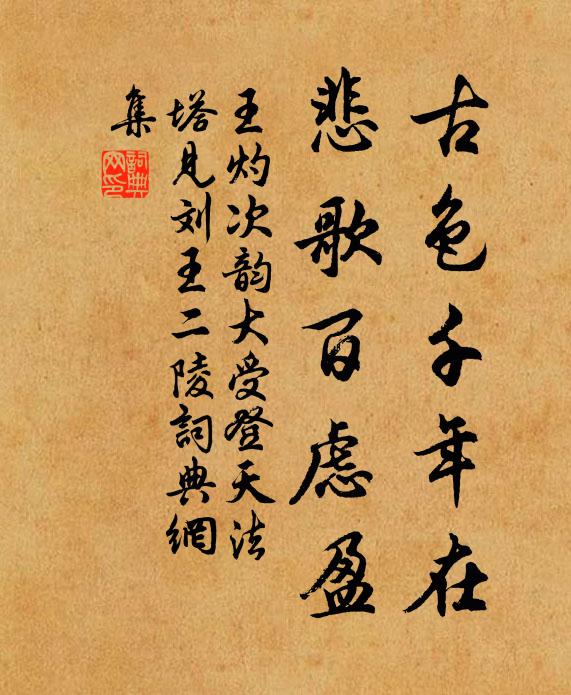 古色千年在
悲歌百虑盈
王灼次韵大受登天法
塔见刘王二陵詞典網
集
詞典
网印